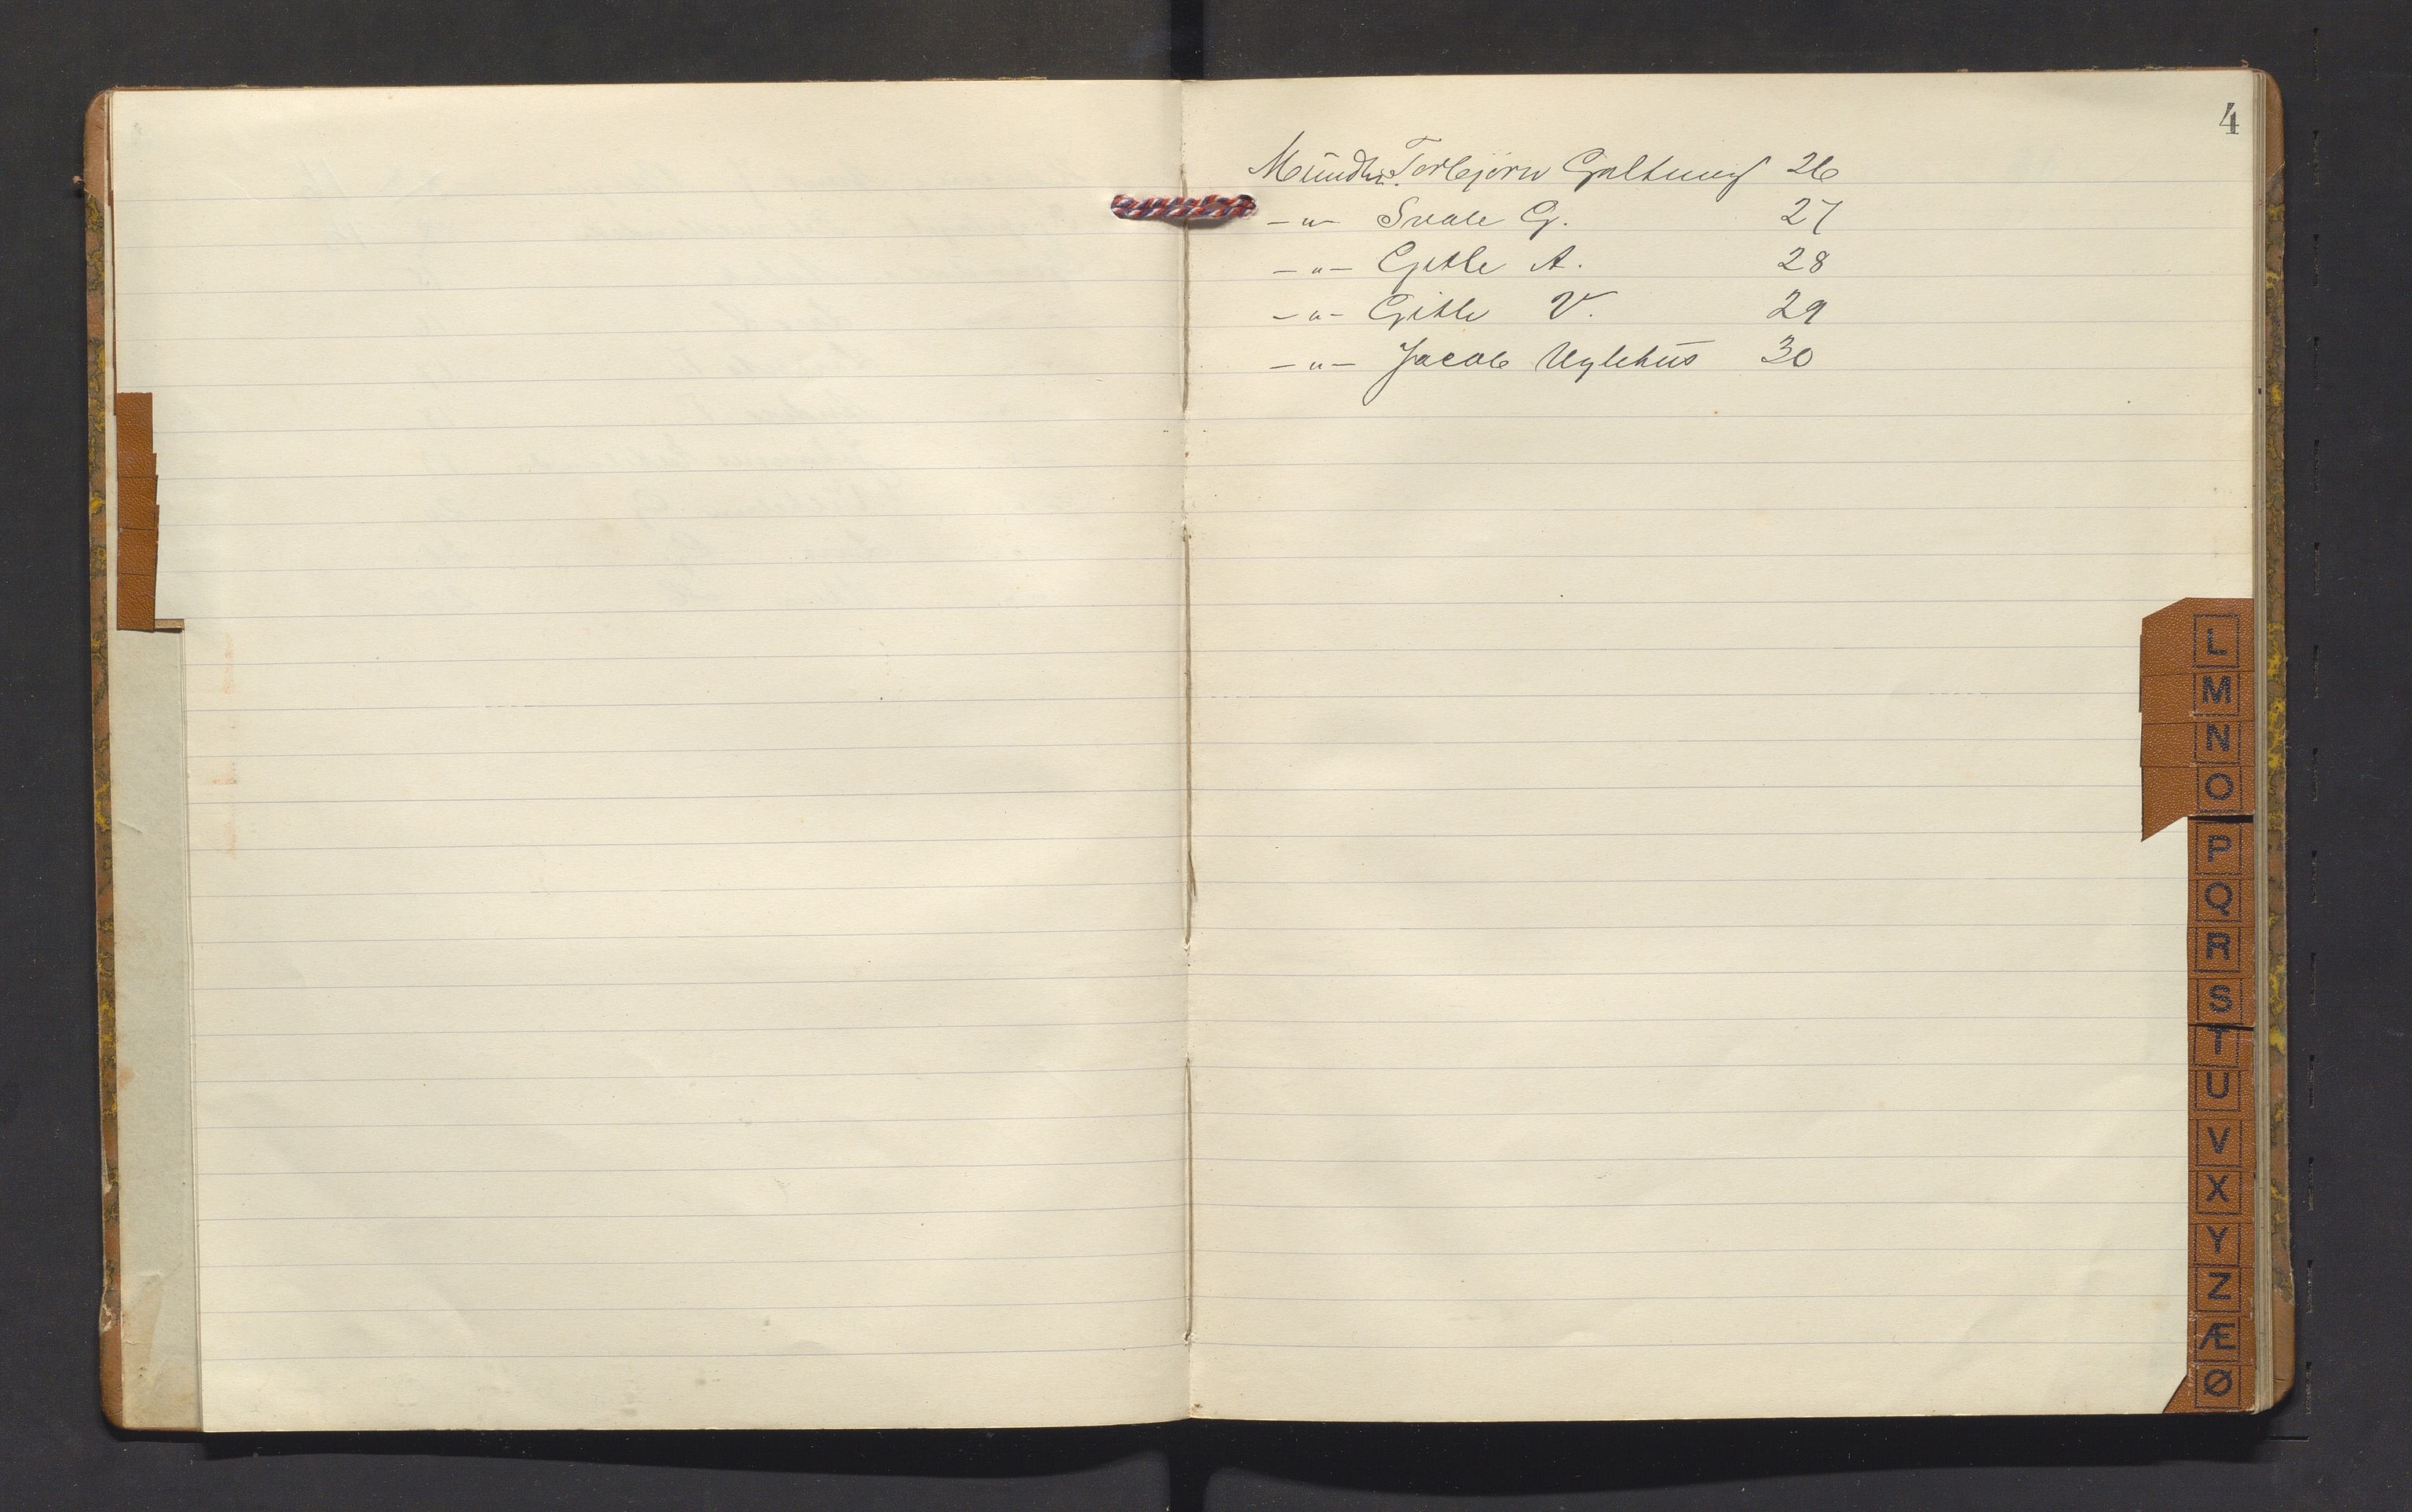 4
Mundheim. Torbjörn Galtung 26
-„- Svale G. 27
-„- Gitle A. 28
-„- Gitle V. 29
-„- Jacob Uglehus 30
L
M
N
O
P
Q
R
S
T
U
V
X
Y
Z
Æ
Ø